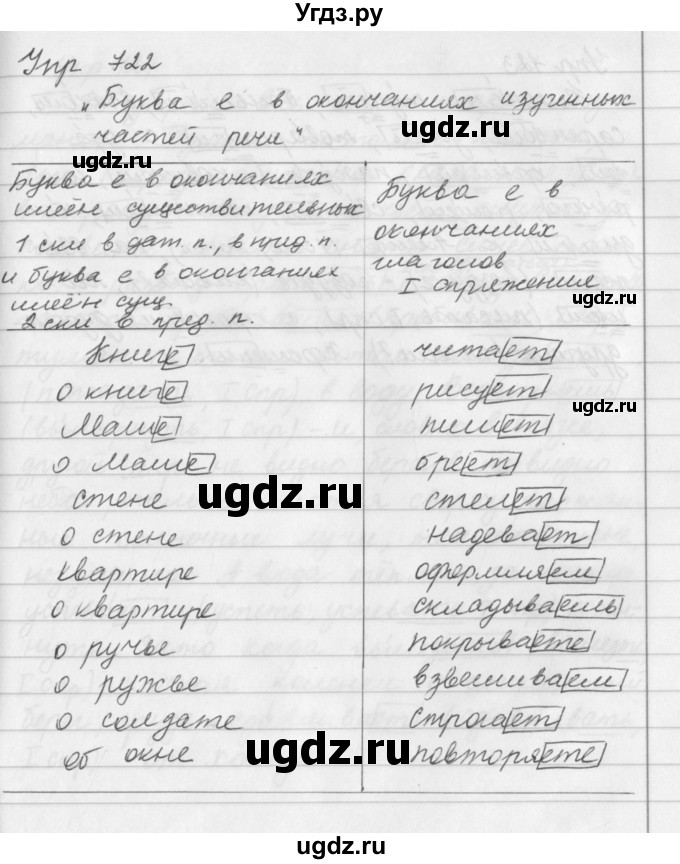 Угдз.ру
Упр 722
„Буква е в окончаниях изученных
частей речи"
Буква е в окончаниях
имён существительных
1 скл в дат. п., в пред. п.
и буква е в окончаниях
имён сущ.
2 скл в пред. п.
Буква е в
окончаниях
глаголов
I спряжения
Книге
о книге
Маше
о Маше
стене
о стене
квартире
о квартире
о ручье
о ружье
о солдате
об окне
читает
рисует
пишет
бреет
стелет
надевает
оформляем
складываешь
покрываете
взвешиваем
строгает
повторяете
ugdz.ru
ugdz.ru
ugdz.ru
ugdz.ru
ugdz.ru
ugdz.ru
ugdz.ru
ugdz.ru
ugdz.ru
ugdz.ru